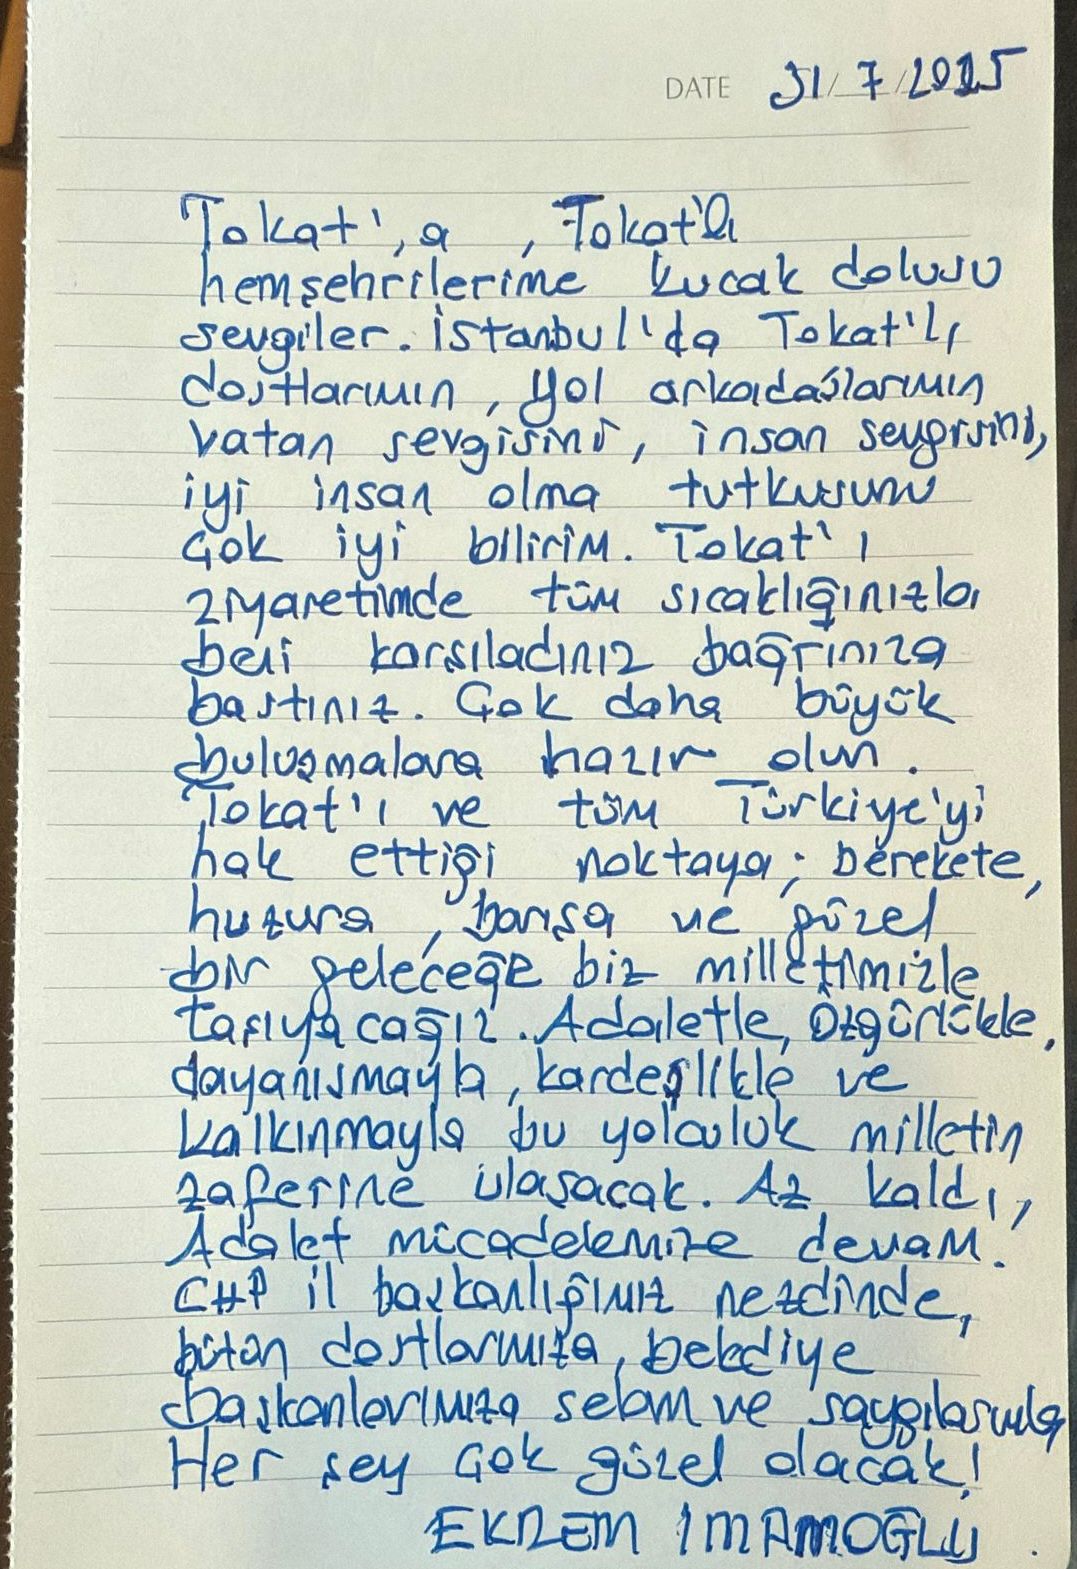 DATE 31/7/2025
Tokat',a , Tokat'lı
hemşehrilerime kucak dolusu
sevgiler. İstanbul'da Tokat'lı
dostlarımın, yol arkadaşlarımın
vatan sevgisini, insan sevgisini,
iyi insan olma tutkusunu
çok iyi bilirim. Tokat'ı
ziyaretimde tüm sıcaklığınızla
beni karşıladınız bağrınıza
bastınız. Çok daha büyük
buluşmalara hazır olun.
Tokat'ı ve tüm Türkiye'yi
hak ettiği noktaya; berekete,
huzura, barışa ve güzel
bir geleceğe biz milletimizle
taşıyacağız. Adaletle, özgürlükle,
dayanışmayla, kardeşlikle ve
kalkınmayla bu yolculuk milletin
zaferine ulaşacak. Az kaldı,
Adalet mücadelemize devam.
CHP il başkanlığımız nezdinde,
bütün dostlarımıza, belediye
başkanlarımıza selam ve saygılarımla
Her şey çok güzel olacak!
EKREM İMAMOĞLU